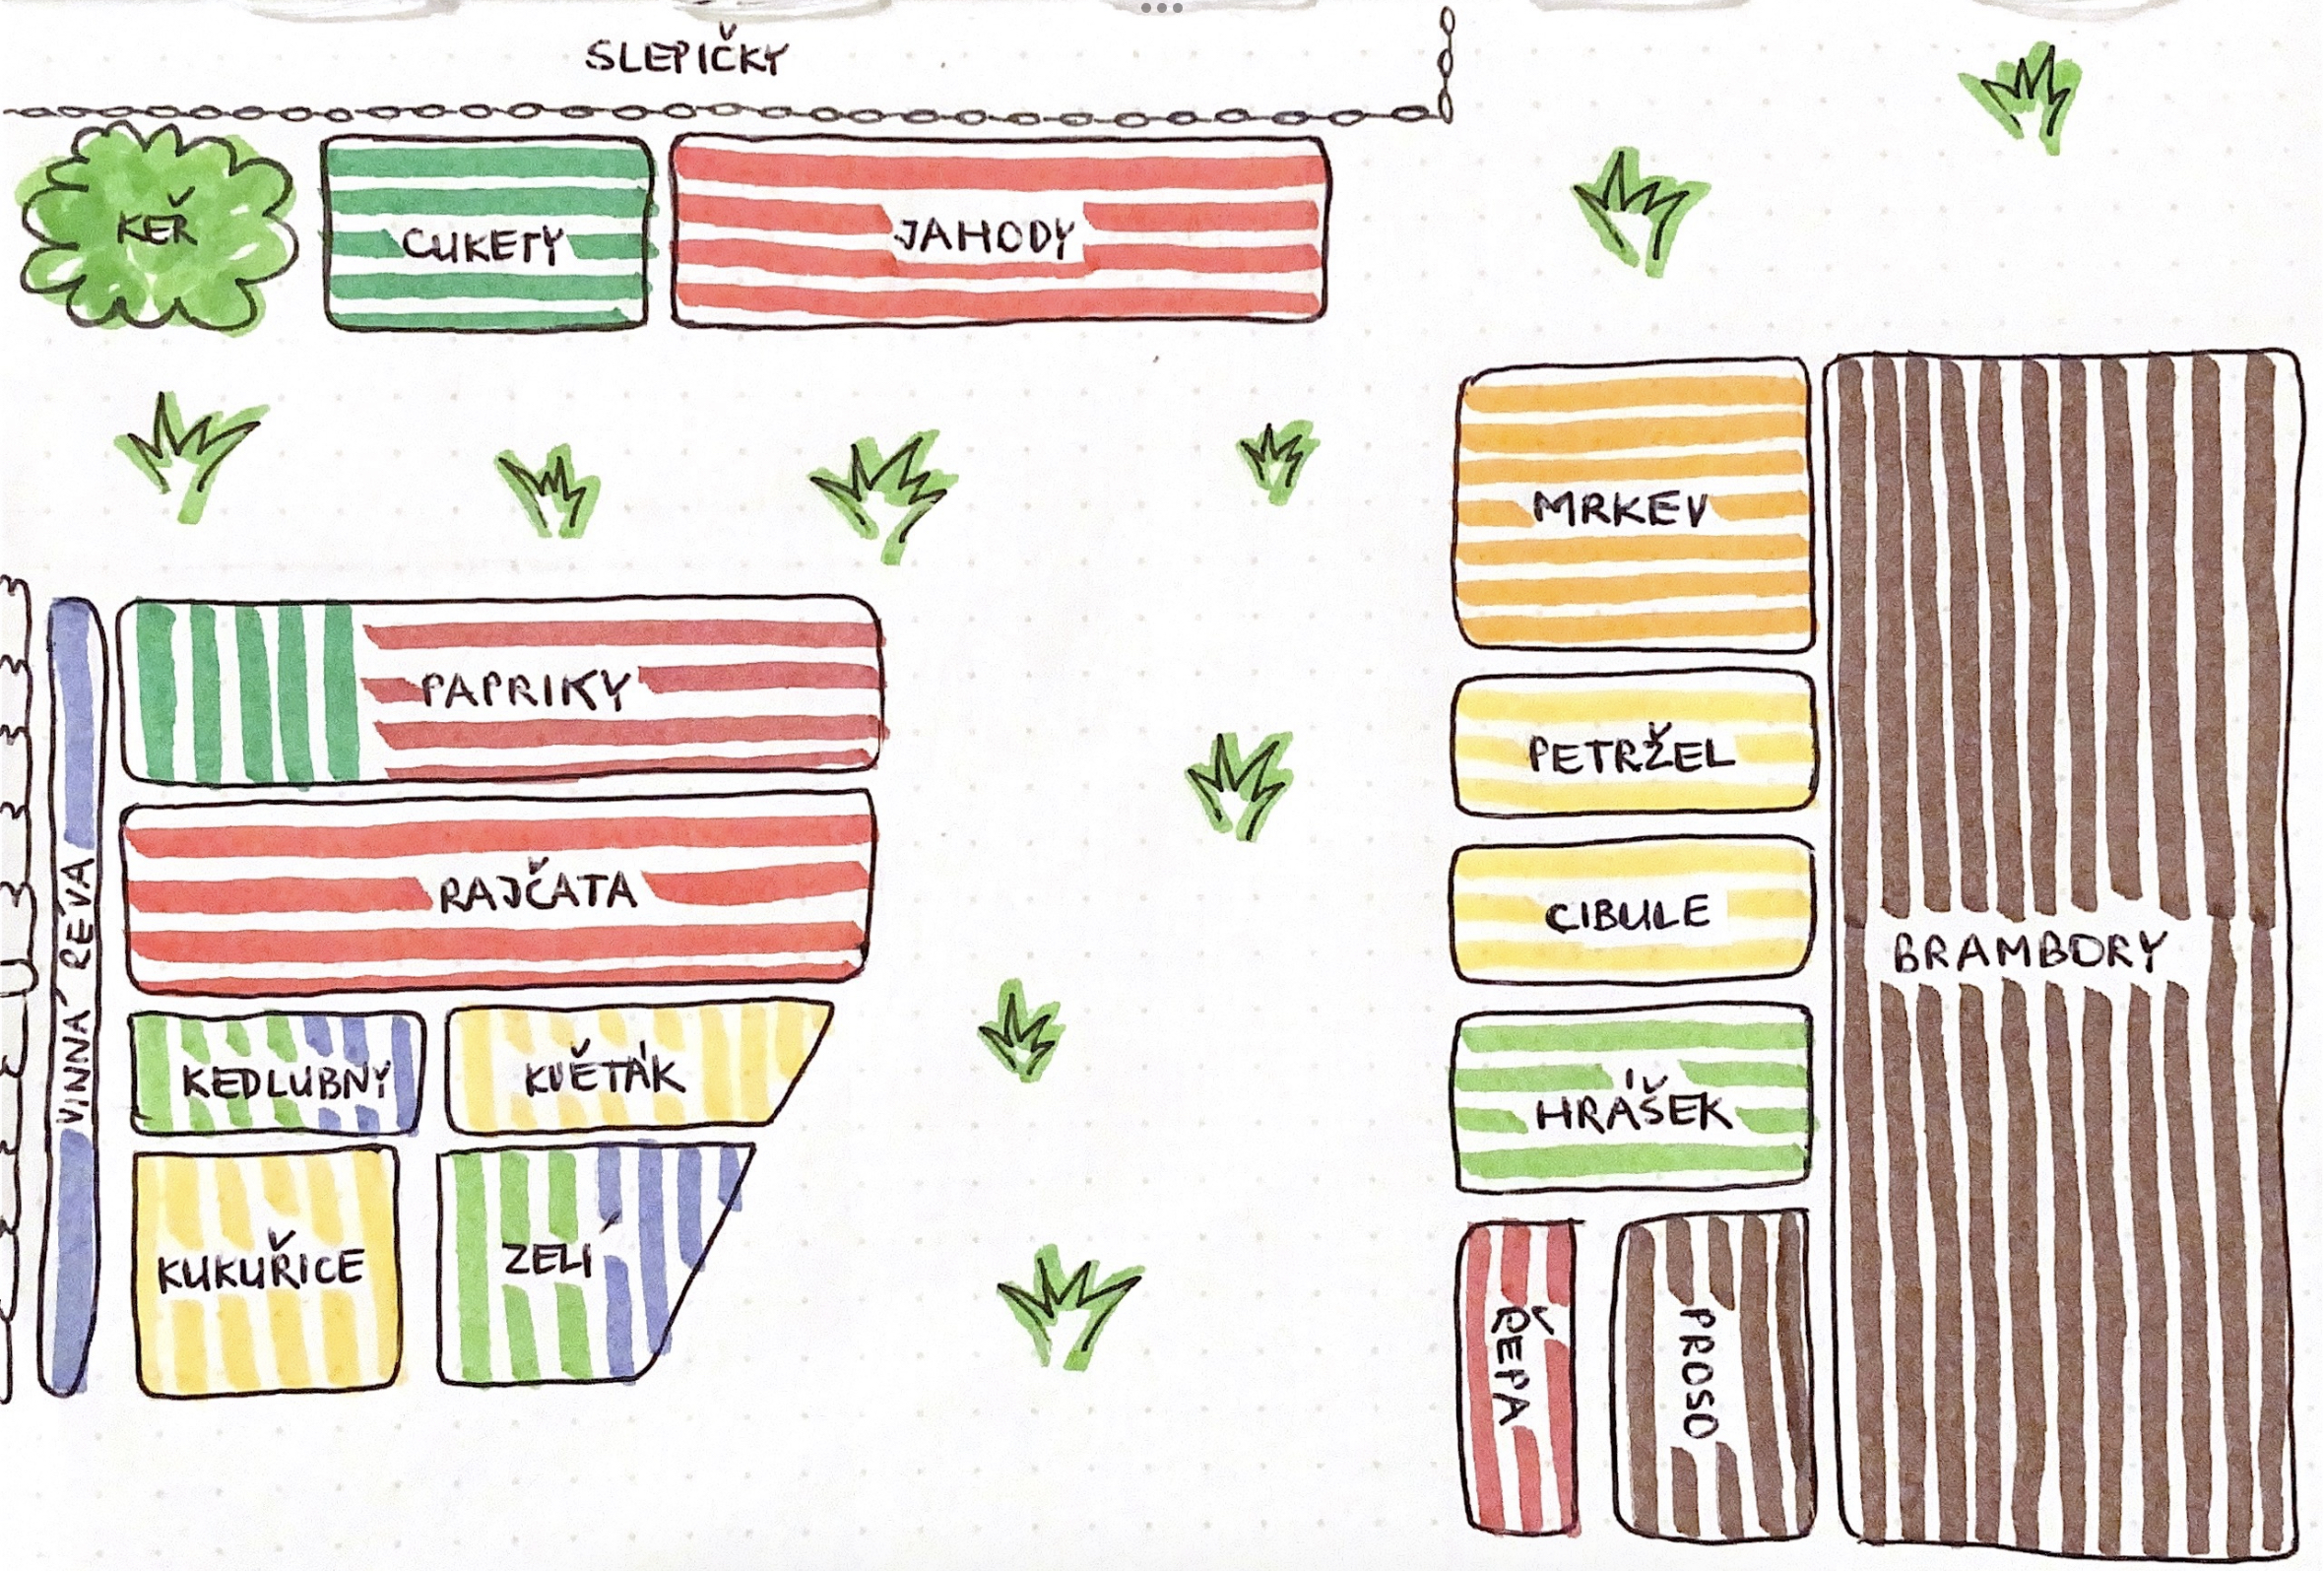 SLEPIČKY
KEŘ
CUKETY
JAHODY
MRKEV
PAPRIKY
PETRŽEL
RAJČATA
CIBULE
BRAMBORY
VINNÁ RÉVA
KEDLUBNY
KVĚTÁK
HRÁŠEK
KUKUŘICE
ZELÍ
ŘEPA
PROSO